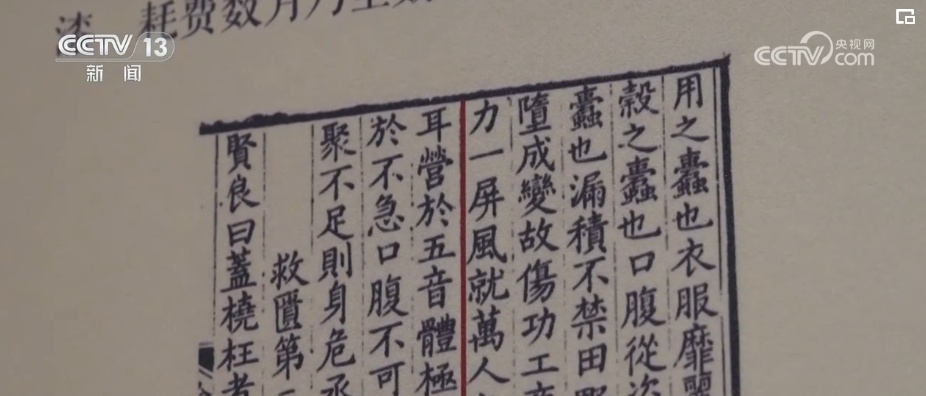 CCTV 13
新闻
央视网
CCTV.com
耗费数月乃至数
用之蠹也衣服靡麗
穀之蠹也口腹從恣
蠹也漏積不禁田野
墮成變故傷功工商
力一屏風就萬人
耳營於五音體極
於不急口腹不可
聚不足則身危丞
救匱第
賢良曰蓋橈枉者